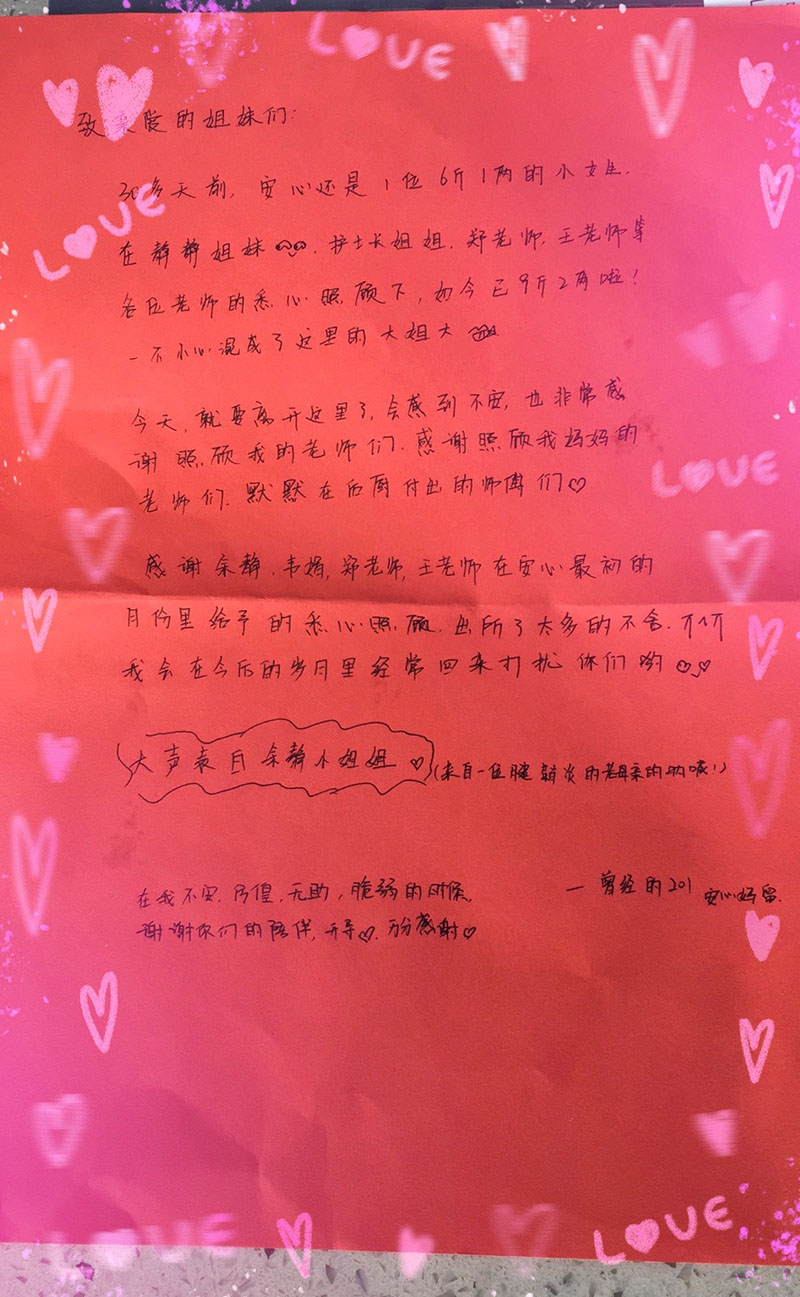 LOVE
致亲爱的姐妹们:
30多天前, 安心还是1位6斤1两的小女生.
LOVE
在静静姐妹 护士长姐姐, 郑老师, 王老师等
各位老师的悉心照顾下, 如今已9斤2两啦!
一不小心混成了这里的大姐大
今天, 就要离开这里了, 会感到不安, 也非常感
谢照顾我的老师们. 感谢照顾我妈妈的
老师们. 默默在后厨付出的师傅们♡
LOVE
感谢余静, 韦娟, 郑老师, 王老师在安心最初的
月份里给予的悉心照顾. 出所了太多的不舍.
我会在今后的岁月里经常回来打扰你们哟
大声表白余静小姐姐♡
(来自一位腱鞘炎的老母亲的呐喊!)
在我不安, 彷徨, 无助, 脆弱的时候,
谢谢你们的陪伴, 开导♡. 万分感谢♡
— 曾经的201 安心妈留.
LOVE